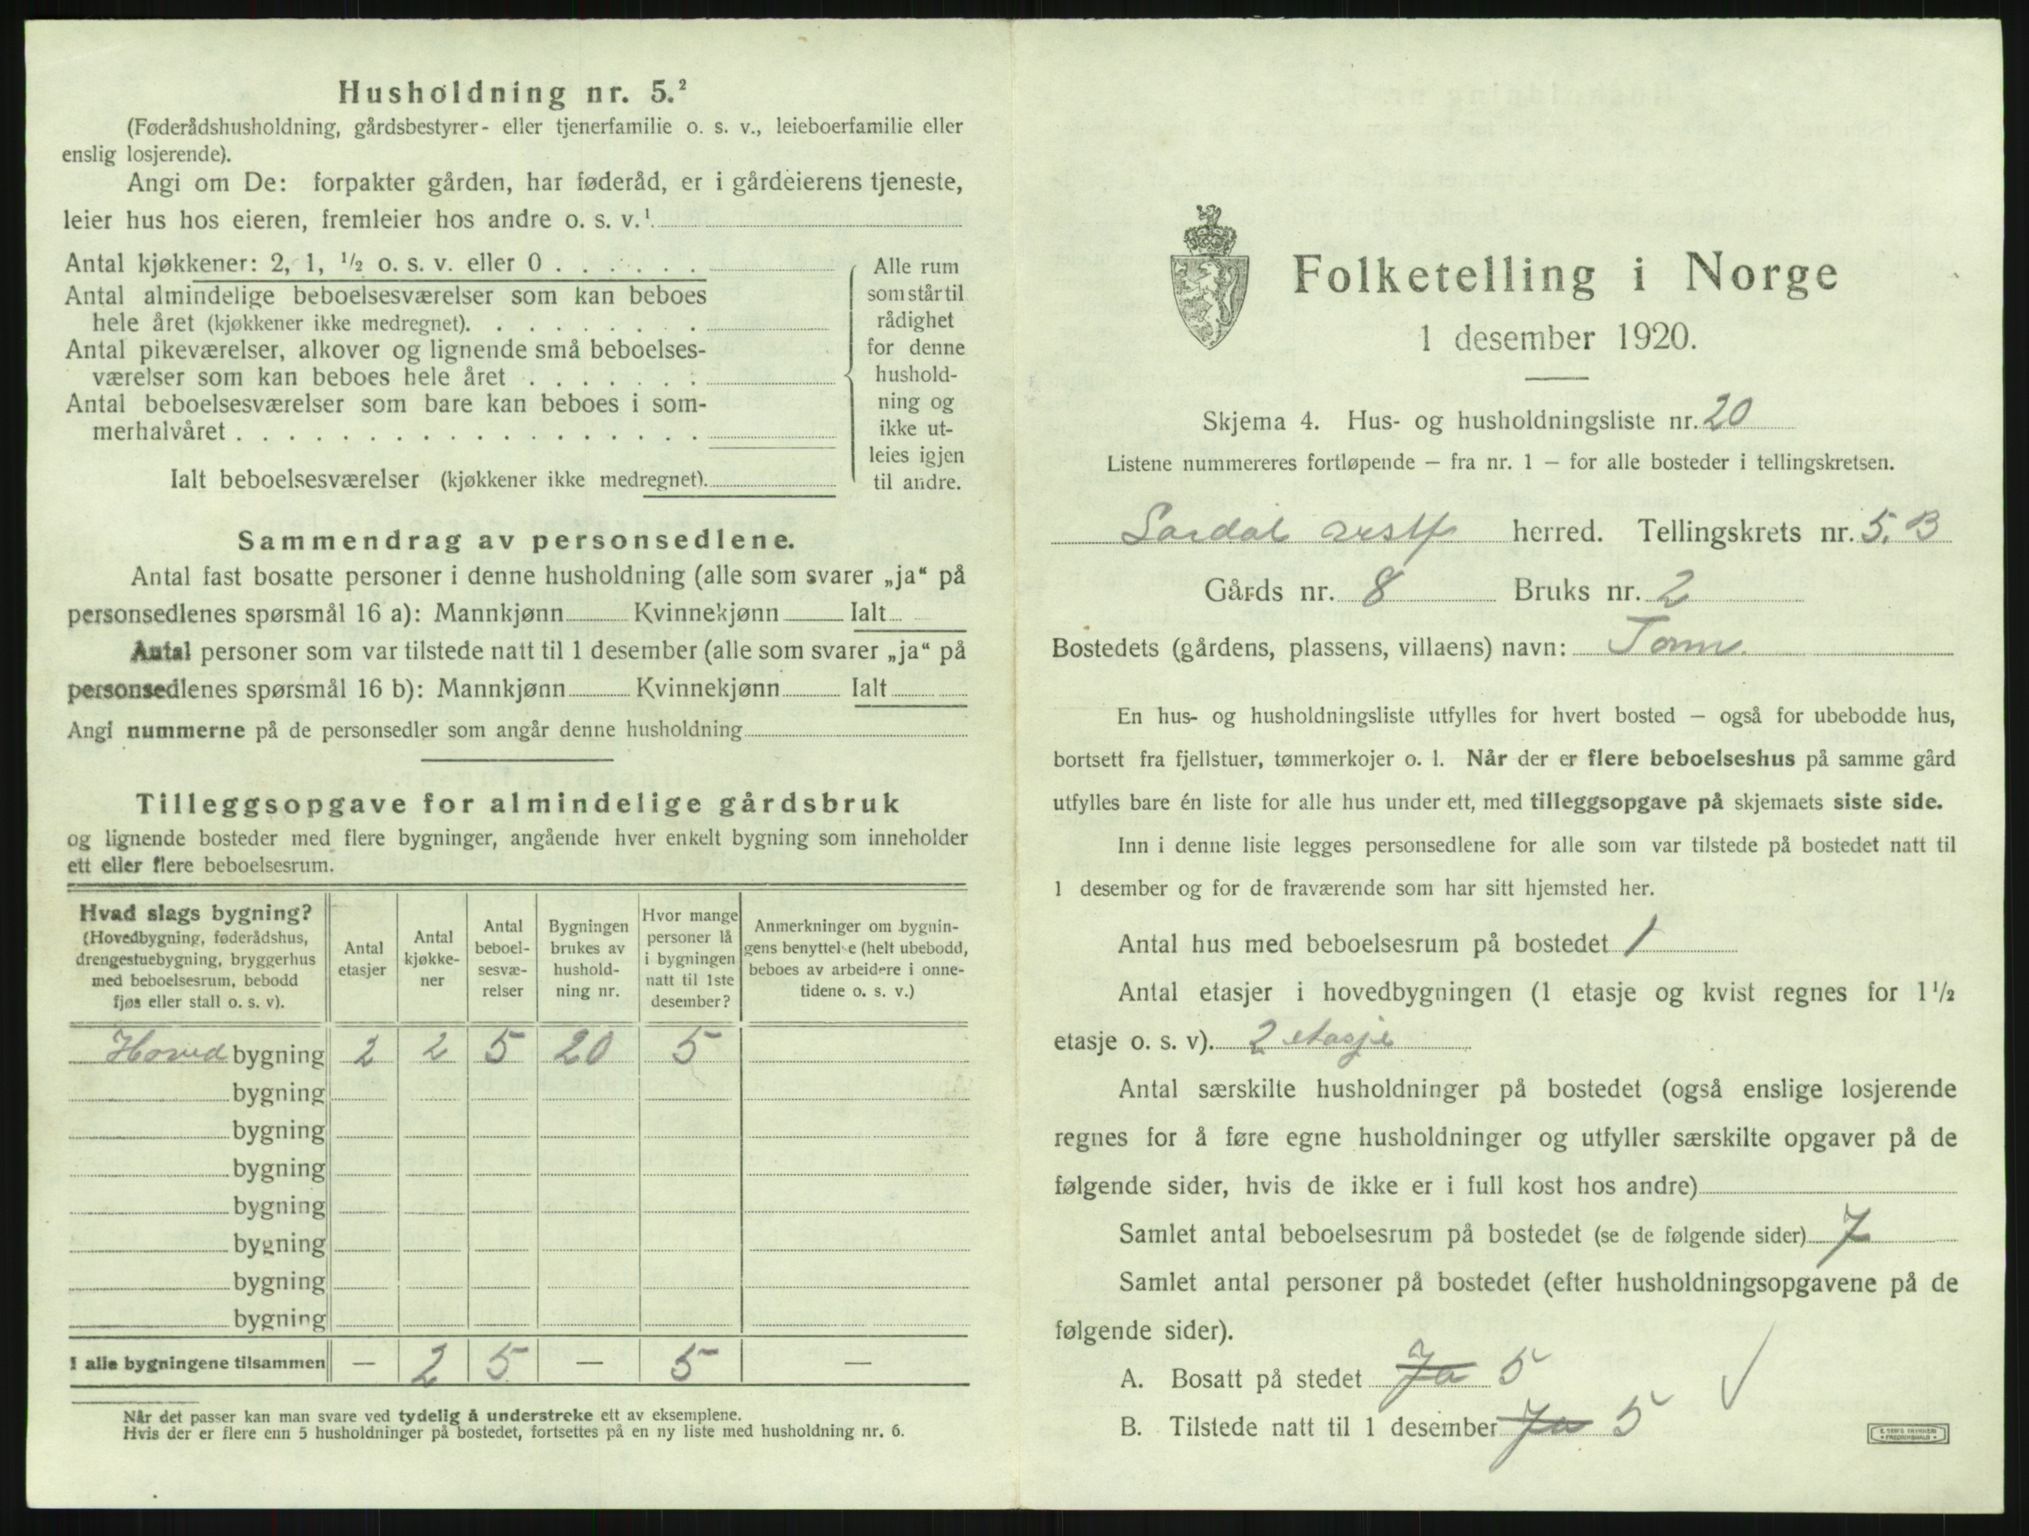 Husholdning nr. 5.²
(Føderådshusholdning, gårdsbestyrer- eller tjenerfamilie o. s. v., leieboerfamilie eller
enslig losjerende).
Angi om De: forpakter gården, har føderåd, er i gårdeierens tjeneste,
leier hus hos eieren, fremleier hos andre o. s. v.¹
Antal kjøkkener: 2, 1, ½ o. s. v. eller 0 . . . . . .
Antal almindelige beboelsesværelser som kan beboes
hele året (kjøkkener ikke medregnet). . . . . . . . .
Antal pikeværelser, alkover og lignende små beboelses-
værelser som kan beboes hele året . . . . . . .
Antal beboelsesværelser som bare kan beboes i som-
merhalvåret . . . . . . . . . . . . . . . . . .
Ialt beboelsesværelser (kjøkkener ikke medregnet).
Alle rum
som står til
rådighet
for denne
hushold-
ning og
ikke ut-
leies igjen
til andre.
Sammendrag av personsedlene.
Antal fast bosatte personer i denne husholdning (alle som svarer „ja“ på
personsedlenes spørsmål 16 a): Mannkjønn Kvinnekjønn Ialt
Antal personer som var tilstede natt til 1 desember (alle som svarer „ja“ på
personsedlenes spørsmål 16 b): Mannkjønn Kvinnekjønn Ialt
Angi nummerne på de personsedler som angår denne husholdning
Tilleggsopgave for almindelige gårdsbruk
og lignende bosteder med flere bygninger, angående hver enkelt bygning som inneholder
ett eller flere beboelsesrum.
Hvad slags bygning?
(Hovedbygning, føderådshus,
drengestuebygning, bryggerhus
med beboelsesrum, bebodd
fjøs eller stall o. s. v).
Antal
etasjer
Antal
kjøkke-
ner
Antal
beboel-
sesvæ-
relser
Bygningen
brukes av
hushold-
ning nr.
Hvor mange
personer lå
i bygningen
natt til 1ste
desember?
Anmerkninger om bygnin-
gens benyttelse (helt ubebodd,
beboes av arbeidere i onne-
tidene o. s. v.)
Hoved bygning 2 2 5 20 5
bygning
bygning
bygning
bygning
bygning
bygning
bygning
I alle bygningene tilsammen — 2 5 — 5 —
Når det passer kan man svare ved tydelig å understreke ett av eksemplene.
Hvis der er flere enn 5 husholdninger på bostedet, fortsettes på en ny liste med husholdning nr. 6.
Folketelling i Norge
1 desember 1920.
Skjema 4. Hus- og husholdningsliste nr. 20
Listene nummereres fortløpende – fra nr. 1 – for alle bosteder i tellingskretsen.
herred. Tellingskrets nr. 5. B
Gårds nr. 8 Bruks nr. 2
Bostedets (gårdens, plassens, villaens) navn: Torm.
En hus- og husholdningsliste utfylles for hvert bosted – også for ubebodde hus,
bortsett fra fjellstuer, tømmerkojer o. l. Når der er flere beboelseshus på samme gård
utfylles bare én liste for alle hus under ett, med tilleggsopgave på skjemaets siste side.
Inn i denne liste legges personsedlene for alle som var tilstede på bostedet natt til
1 desember og for de fraværende som har sitt hjemsted her.
Antal hus med beboelsesrum på bostedet 1
Antal etasjer i hovedbygningen (1 etasje og kvist regnes for 1½
etasje o. s. v). 2 etasje
Antal særskilte husholdninger på bostedet (også enslige losjerende
regnes for å føre egne husholdninger og utfyller særskilte opgaver på de
følgende sider, hvis de ikke er i full kost hos andre)
Samlet antal beboelsesrum på bostedet (se de følgende sider) 7
Samlet antal personer på bostedet (efter husholdningsopgavene på de
følgende sider).
A. Bosatt på stedet Ja 5
B. Tilstede natt til 1 desember Ja 5